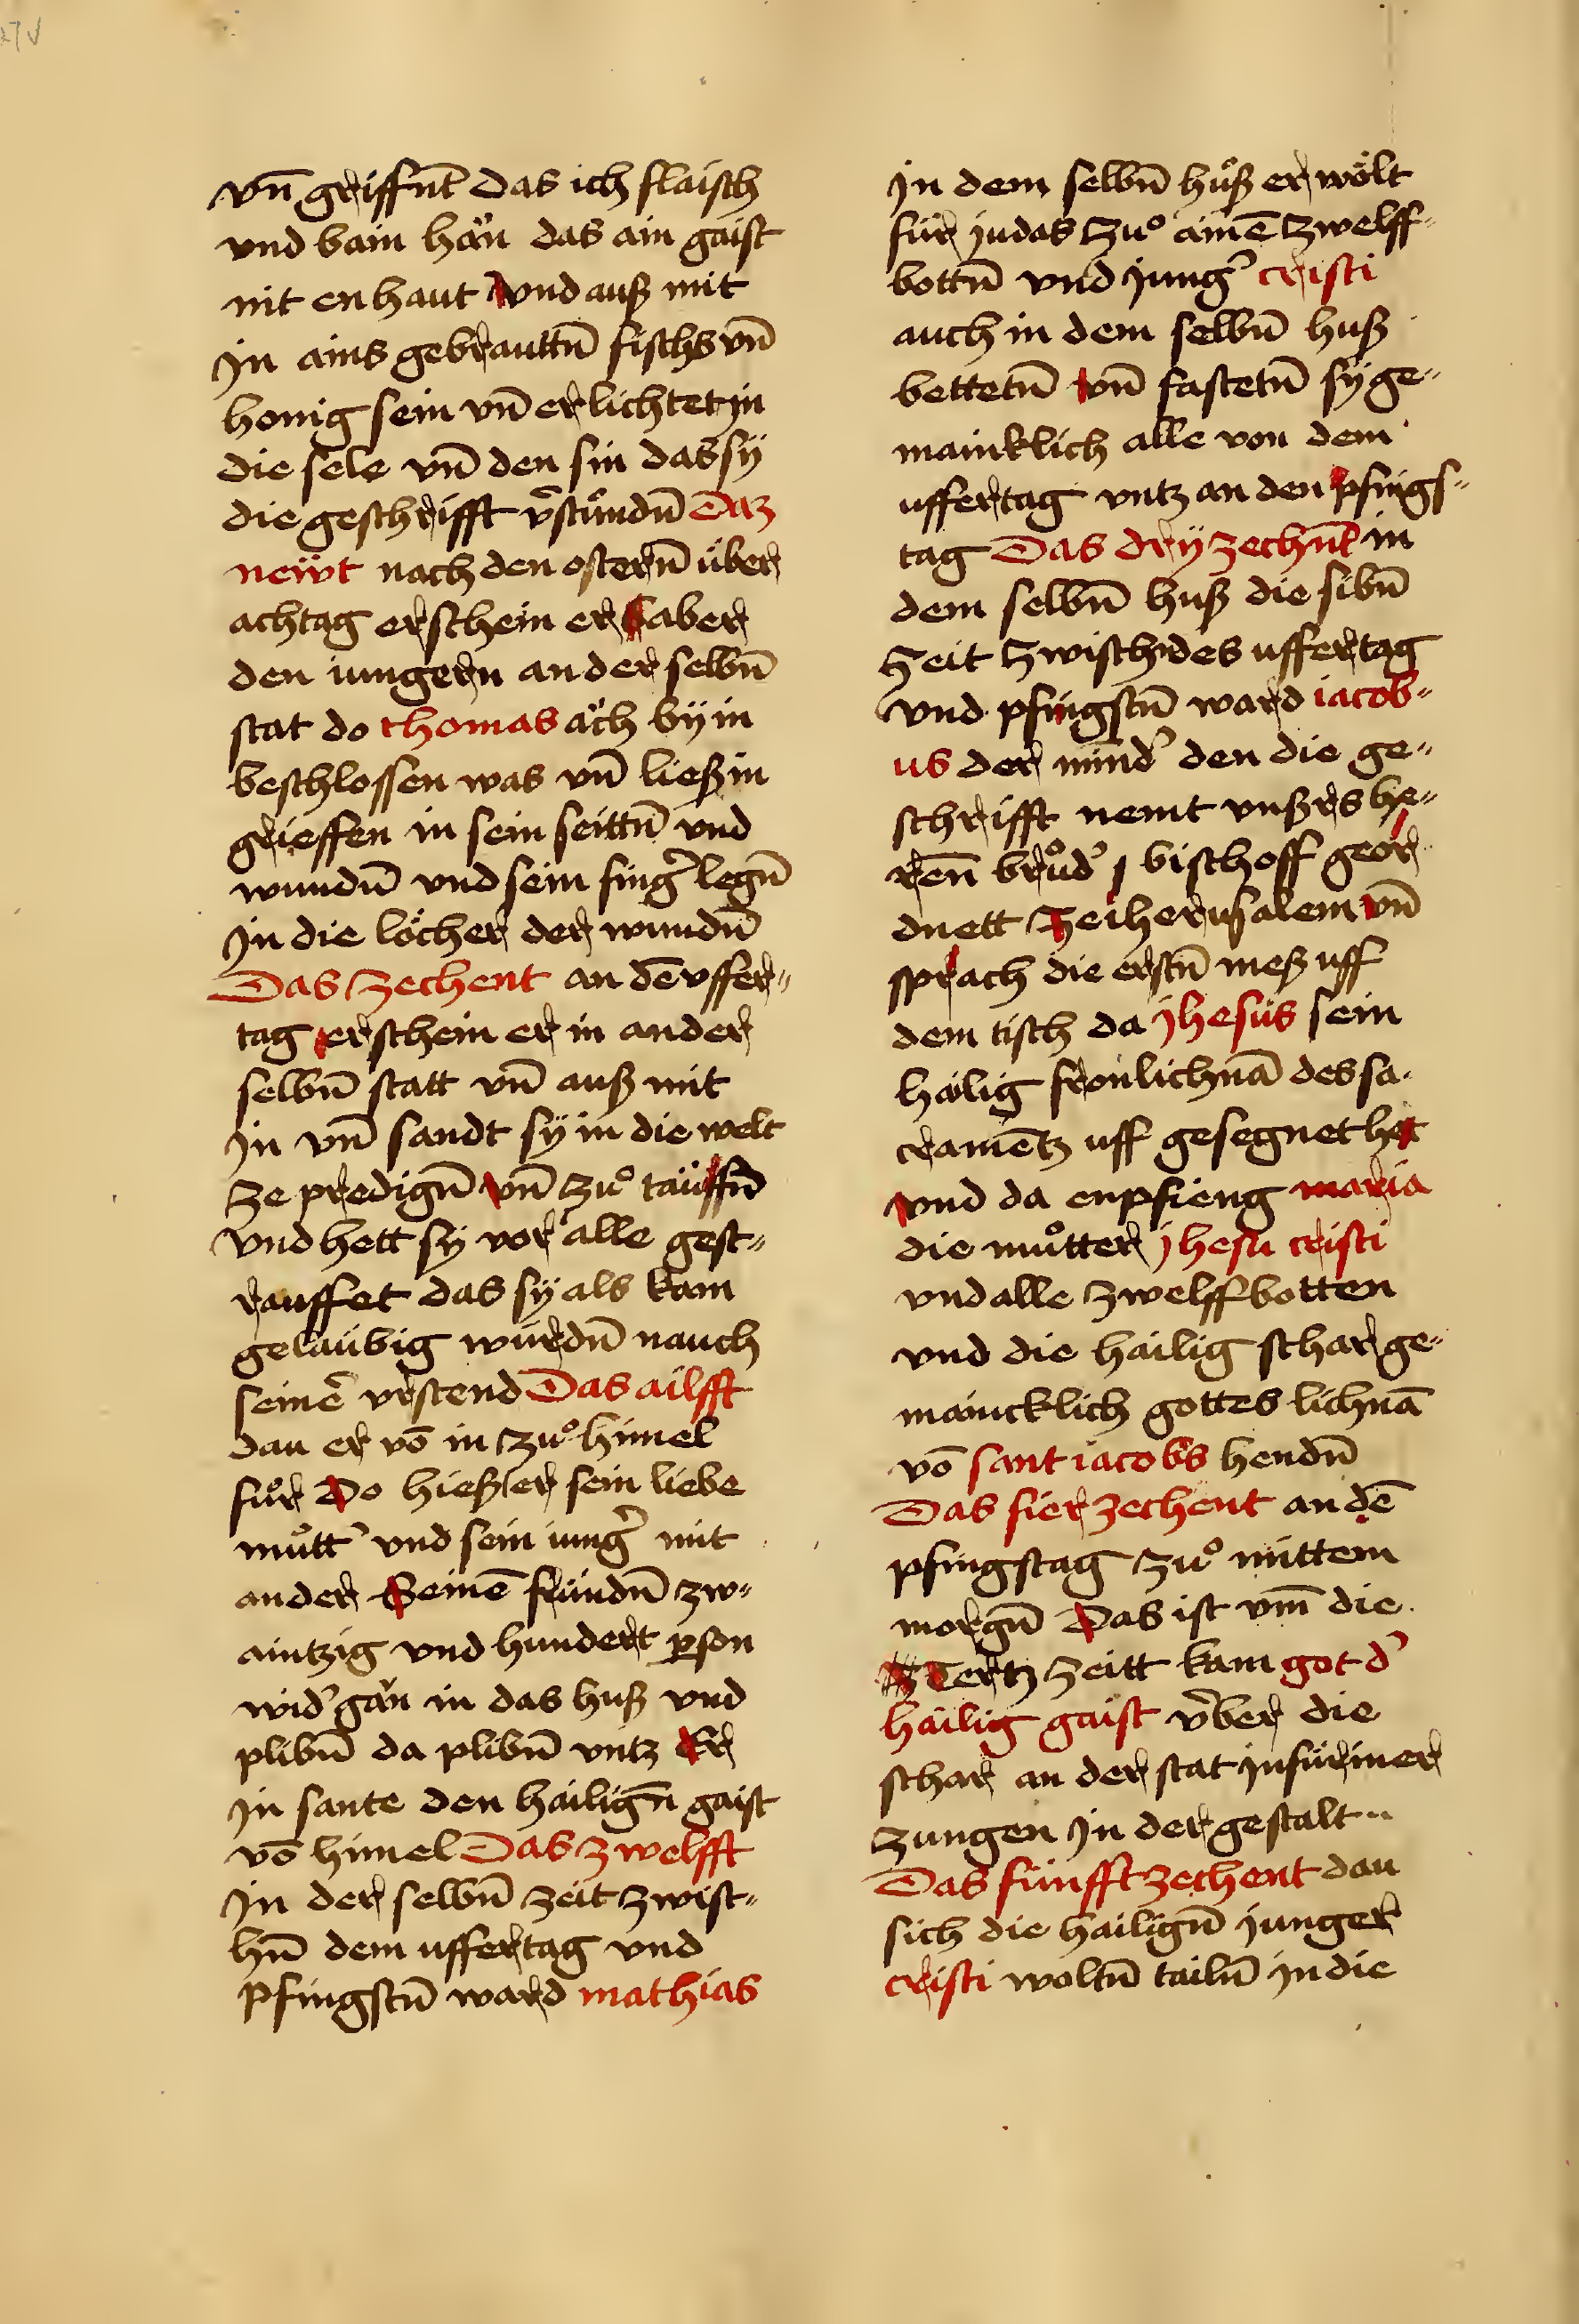 vn̄ griffnt̄ das ich flaisch
und bain hän das ain gaist
nit en haut und auß mit
jn ains gebrauttn̄ fischs vn̄
honig sein vn̄ erlichtet in
die sele vn̄ den sin das sÿ
die geschrifft v̄stündn̄ Daz
newt nach den ostern̄ über
achtag erschein er aber
den iungern an der selbn̄
stat do thomas äch bÿ in
beschlossen was vn̄ ließ in
grieffen in sein seittn̄ vnd
wundn̄ vnd sein fing̉ legn̄
jn die löcher der wundn̄
Das zechent an dē vffer„
tag erschein er in an der
selbn̄ statt vn̄ auß mit
jn vn̄ sandt sÿ in die welt
ze predign̄ vn̄ zuͦ täuffn̄
vnd hett sy vor alle gest„
rauffet das sÿ als kam
geläubig würdn̄ nauch
seinē vrstend Das ailfft
dau er vō in zuͦ himel
fuͦr Do hieß er sein liebe
muͦtt̉ vnd sein iung̉ mit
ander Seinē fründn̄ zw„
aintzig vnd hundert ꝑson
wid̉ gän in das huß vnd
plibn̄ da plibn̄ vntz Er
jn sante den hailign̄ gaist
vō himel Das zwelfft
jn der selbn̄ zeit zwist„
hn̄ dem uffertag vnd
pfingstn̄ ward mathias
jn dem selbn̄ huͦß er wölt
für judas zuͦ ainē zwelff„
bottn̄ vnd jung̉ cristi
auch in dem selbn̄ huß
bettetn̄ vn̄ fastetn̄ sÿ ge„
mainklich alle von dem
uffertag vntz an den pfings„
tag Das drÿzechn̄t in
dem selbn̄ huß die sibn̄
Zeit zwischn̄ des uffertag
vnd pfingstn̄ ward iacob„
us der mind̉ den die ge„
schrifft nemt vnßrs he„
ren̄ bruͦd̉ j bischoff geor„
dnett ze iherusalem vn̄
sprach die erstn̄ meß uff
dem tisch da jhesus sein
hailig fronlichnā des sa„
cramētz uff gesegnet het
vnd da enpfieng maria
die muͦtter jhesu cristi
vnd alle zwelffbotten
vnd die hailig schar ge„
mainncklich gottes lichnā
vō sant iacobs hendn̄
Das fierzechent an dē
pfingstag zuͦ mittem
morgn̄ Das ist vm̄ die
Tertz zeitt kam got d̉
hailig gaist v̈ber die
schar an der stat in füriner
zungen jn der gestalt
Das fünfftzechent dau
sich die hailign̄ junger
cristi woltn̄ tailn̄ jn die